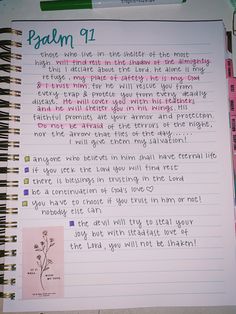 Psalm 91
those who live in the shelter of the most
high will find rest in the shadow of the almighty.
this I declare about the Lord, he alone is my
refuge, my place of safety; he is my God
& I trust him, for he will rescue you from
every trap & protect you from every deadly
disease. He will cover you with his feathers
and he will shelter you in his wings. His
faithful promises are your armor and protection.
Do not be afraid of the terrors of the night,
nor the arrow that flies of the day......
I will give them my salvation!
anyone who believes in him shall have eternal life
if you seek the Lord you will find rest
there is blessings in trusting in the Lord
be a continuation of God's love♡
you have to choose if you trust in him or not!
nobody else can
the devil will try to steal your
joy but with steadfast love of
the Lord, you will not be shaken!
IT IS
WELL
WITH
MY SOUL